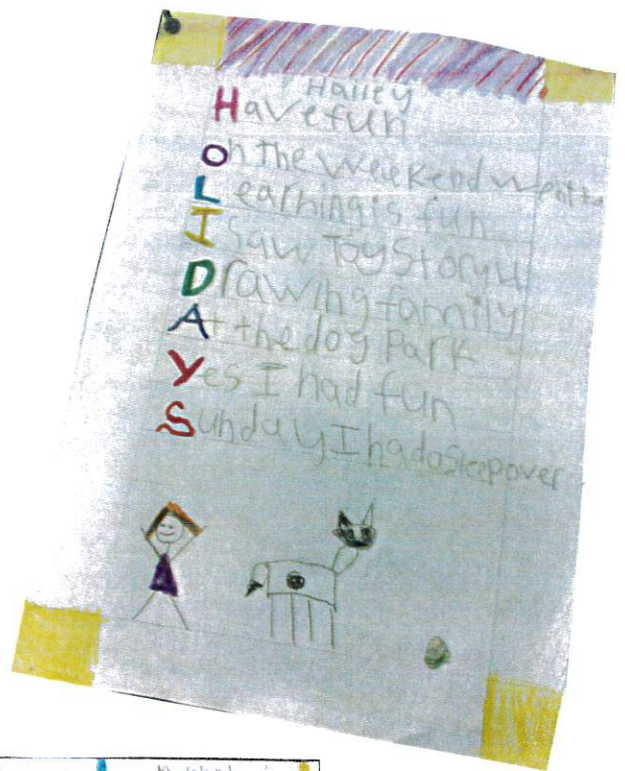 Hailey
Have fun
On the weekend went to
Learning is fun
I saw Toy Story 4
Drawing family
At the dog park
Yes I had fun
Sunday I had a sleepover